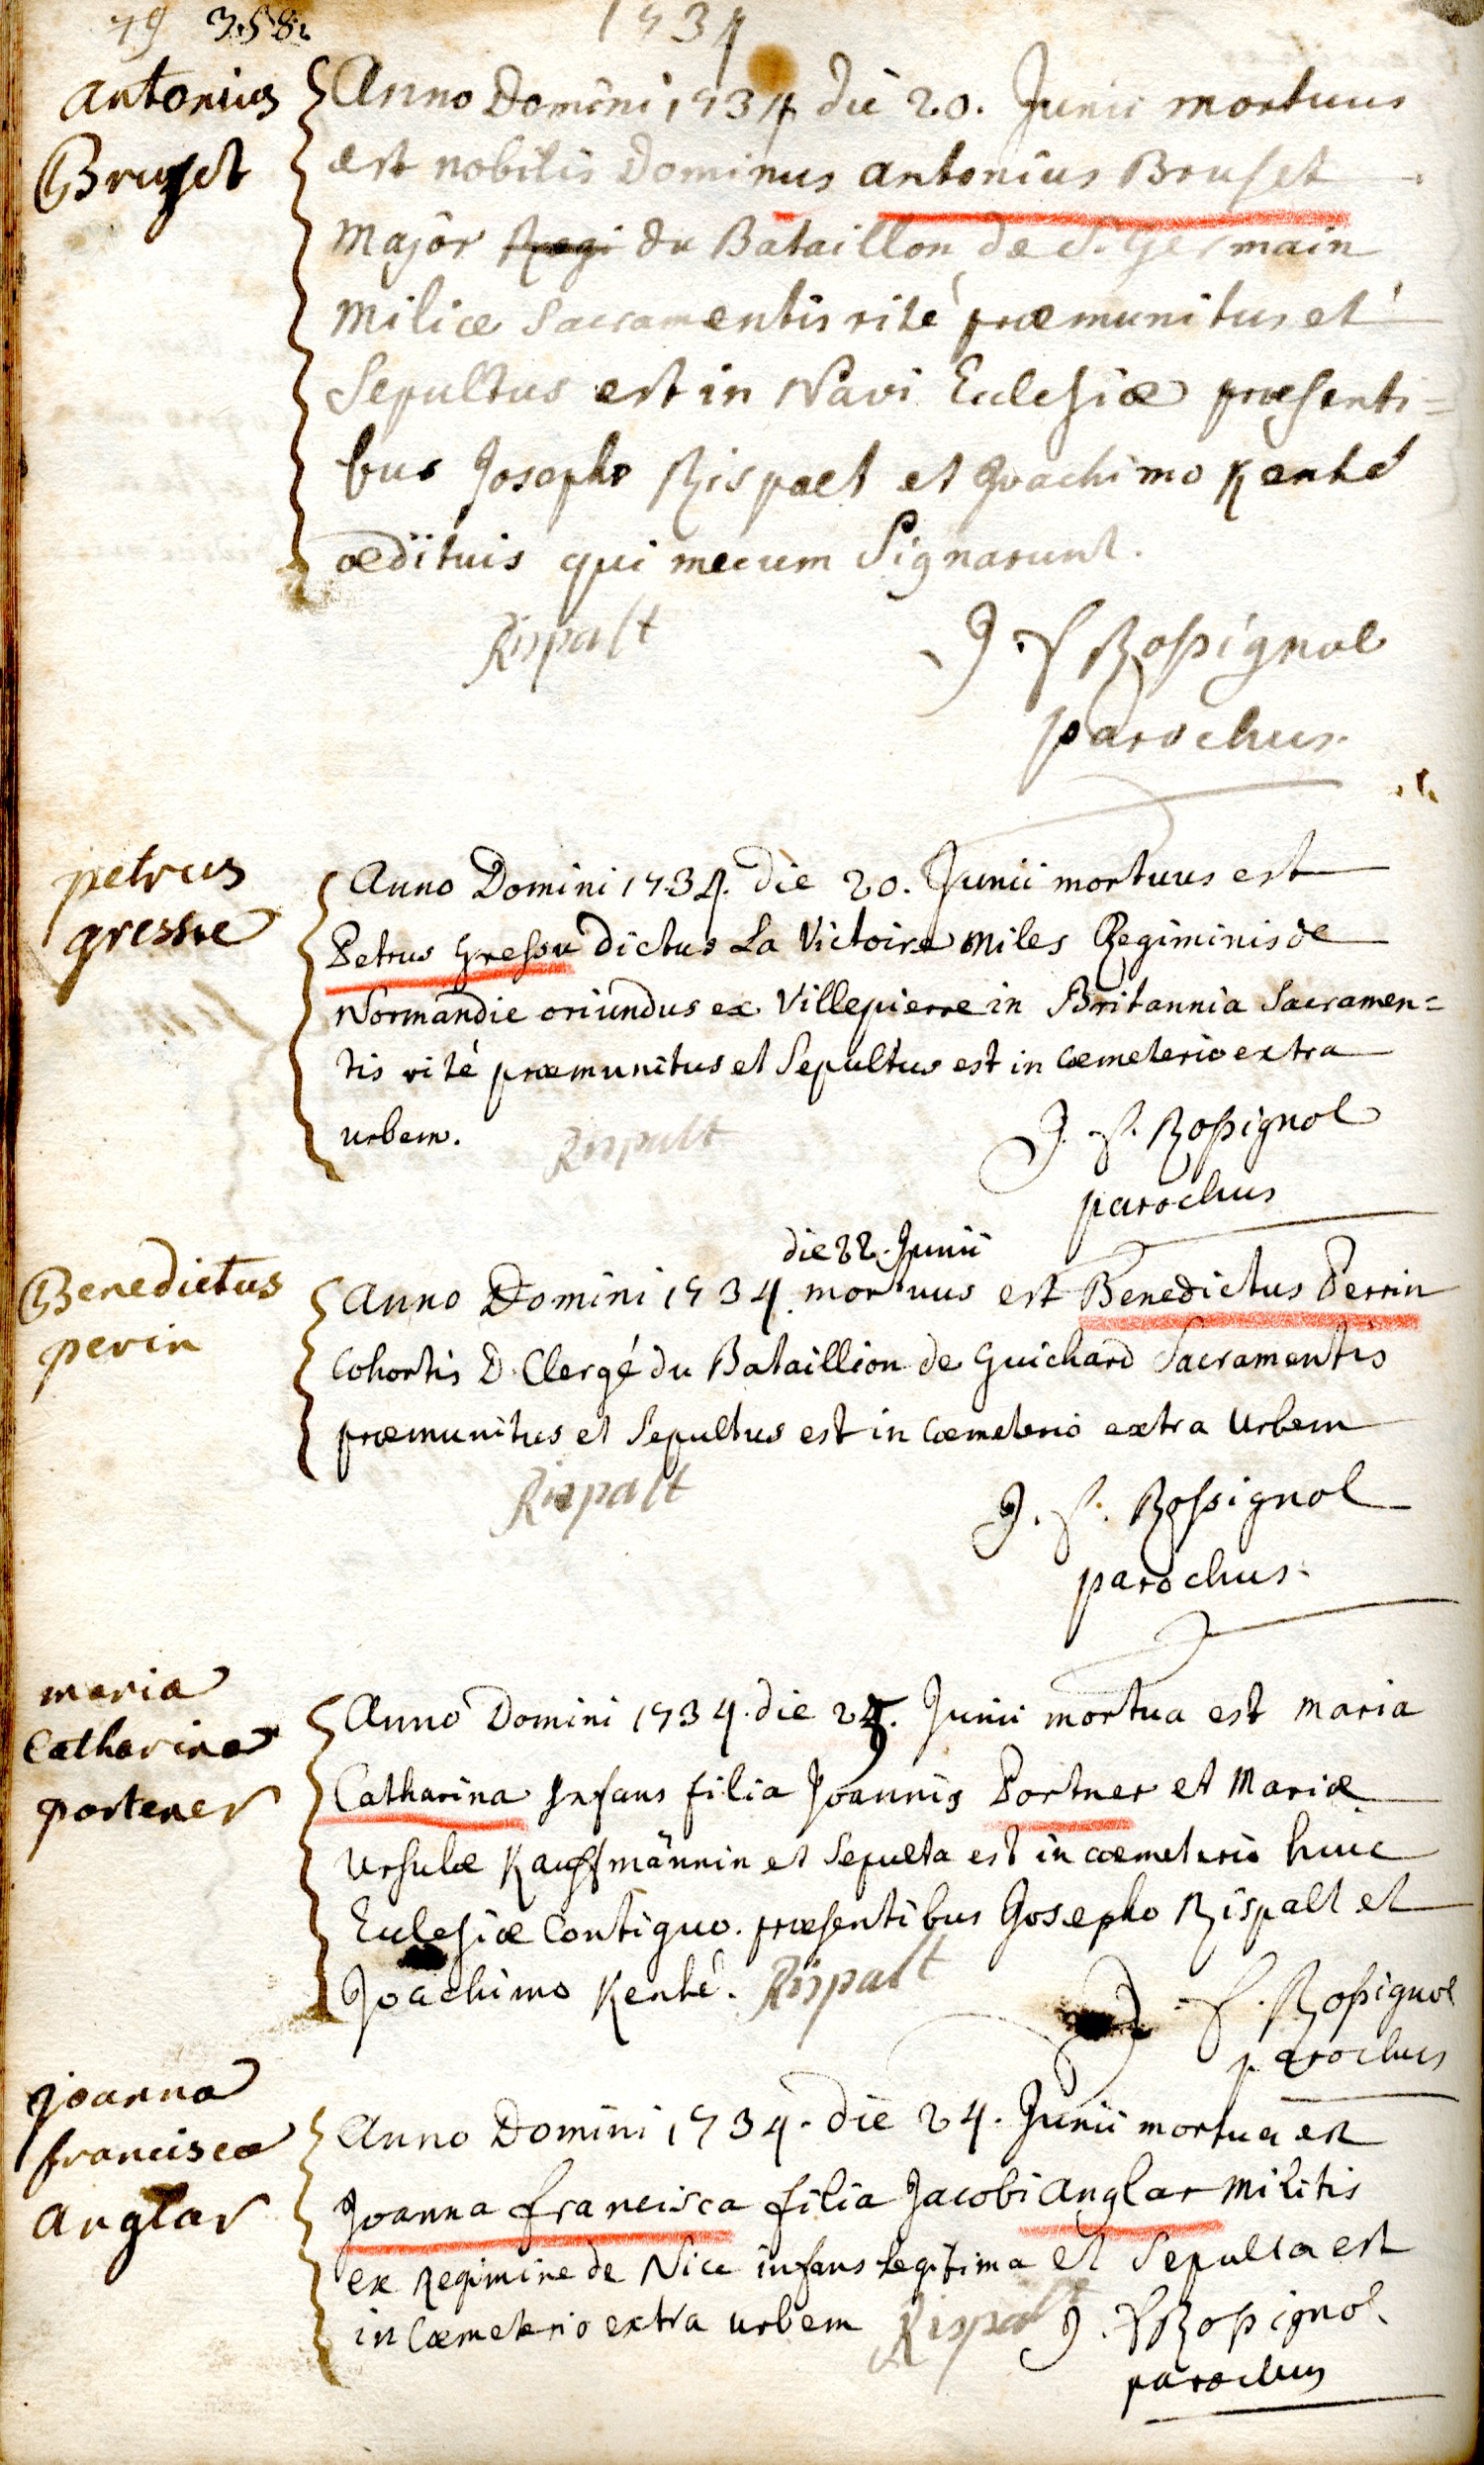 79 358.
1734
antonius
Bruset
Anno Domini 1734 die 20. Junii mortuus
est nobilis Dominus antonius Bruset
Major Regi du Bataillon de S. Germain
Milice Sacramentis rité præmunitus et
Sepultus est in Navi Ecclesiæ præsenti=
bus Josepho Rispalt et Joachimo Kenté
ædituis qui mecum Signarunt.
Rispalt
J. S Rossignol
parochus.
petrus
gressue
Anno Domini 1734. die 20. Junii mortuus est
Petrus Gressu dictus La Victoire miles Regiminis de
Normandie oriundus ex Villepierre in Britannia Sacramen=
tis rité præmunitus et Sepultus est in Cœmeterio extra
urbem.
Rispalt
J. S. Rossignol
parochus
die 22. Junii
Benedictus
perin
Anno Domini 1734. mortuus est Benedictus Perrin
Cohortis D. Clergé du Bataillion de Guichard Sacramentis
præmunitus et Sepultus est in Cœmeterio extra Urbem
Rispalt
J. S. Rossignol
parochus.
maria
Catharina
portener
Anno Domini 1734. die 24. Junii mortua est Maria
Catharina Infans filia Joannis Portner et Mariæ
Ursulæ Kauffmännin et Sepulta est in cœmeterio huic
Ecclesiæ Contiguo. præsentibus Josepho Rispalt et
Joachimo Kenté. Rispalt
J. S. Rossignol
parochus
joanna
francisca
anglar
Anno Domini 1734. die 24. Junii mortua est
Joanna francisca filia Jacobi Anglar Militis
ex Regimine de Nice infans legitima et Sepulta est
in Cœmeterio extra urbem Rispalt J. S Rossignol
parochus